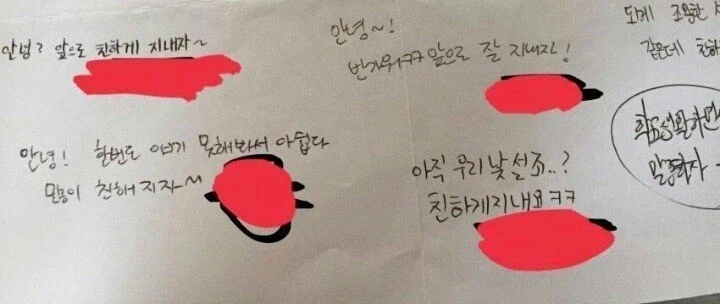 안녕? 앞으로 친하게 지내자~
안녕~!
반가워ㅋㅋ 앞으로 잘 지내자!
안녕! 한번도 얘기 못해봐서 아쉽다
많이 친해지자~
아직 우리 낯설죠..?
친하게지내요ㅋㅋ
되게 조용한
같은데 친하
학교생활하면
말